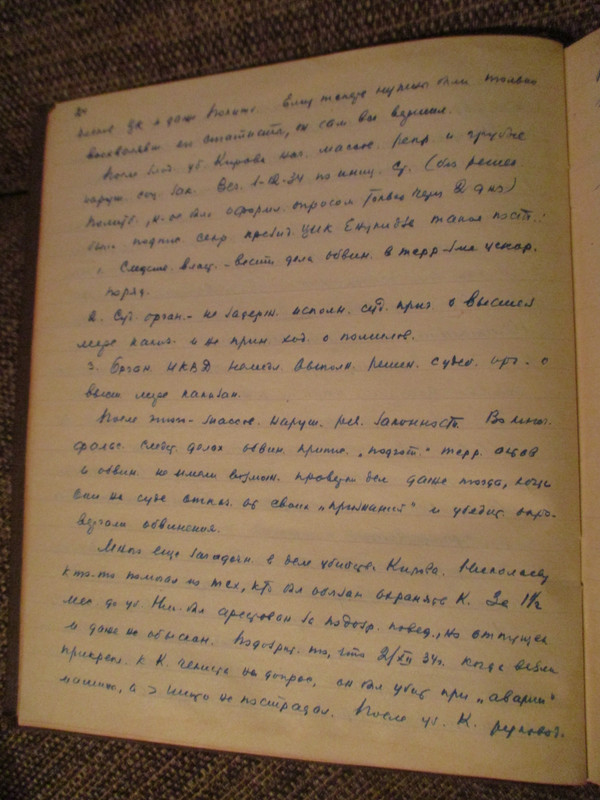 членов ЦК и даже Политб. Власт. теперь нужны были только
восхвалявш. его статисты, он сам все вершил.
После злод. уб. Кирова нач. массов. репр. и грубые
наруш. соц. зак. Веч. 1-12-34 по иниц. Ст. (без решен.
Политб., к-ое было оформл. опросом только через 2 дня)
было подпис. секр. презид. ЦИК Енукидзе такое пост.:
1. Следств. власт. - вести дела обвин. в терр-зме ускор.
поряд.
2. Суд. орган. - не задерж. исполн. суд. приг. о высшей
мере наказ. и не прин. ход. о помилов.
3. Орган. НКВД немедл. выполн. решен. судеб. орг. о
высш. мере наказан.
После этого - массов. наруш. рев. законности. Во мног.
фальс. следц. делах обвин. припис. „подгот." терр. актов
и обвин. не имели возмож. проверки дел даже тогда, когда
они на суде отказ. от своих „признаний" и убедит. опро-
вергали обвинения.
Много еще загадочн. в деле убийства Кирова. Николаеву
кто-то помогал из тех, кто был обязан охранять К. За 1½
мес. до уб. Ник. был арестован за подозр. повед., но отпущен
и даже не обыскан. Подозрит. то, что 2/XII 34г. когда везли
прикреп. к К. чекиста на допрос, он был убит при „аварии"
машины, а никто не пострадал. После уб. К. руковод.